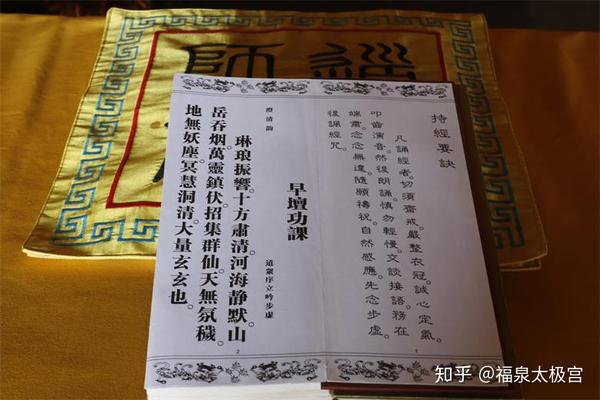 經師
持經要訣
凡誦經者。切須齋戒。嚴整衣冠。誠心定氣。
叩齒演音。然後朗誦。慎勿輕慢。交談接語。務在
端肅。念念無違。隨願禱祝。自然感應。先念步虛。
後誦經咒。
1
早壇功課
澄清韵 道眾序立吟步虛
琳琅振響。十方肅清。河海静默。山
岳吞烟。萬靈鎮伏。招集群仙。天無氛穢。
地無妖塵。冥慧洞清。大量玄玄也。
2
知乎 @福泉太极宫